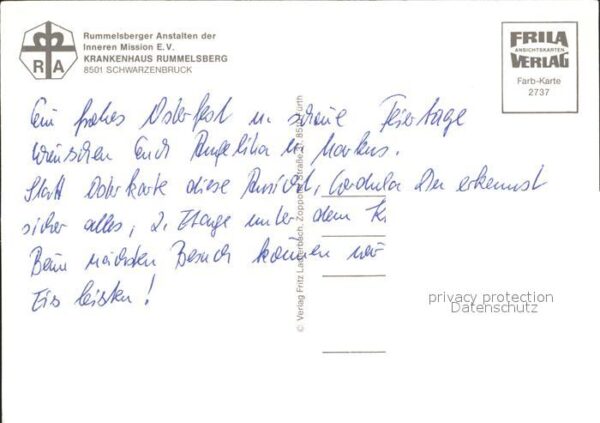 Rummelsberger Anstalten der
Inneren Mission E.V.
KRANKENHAUS RUMMELSBERG
8501 SCHWARZENBRUCK
R A
FRILA
ANSICHTSKARTEN
VERLAG
Farb-Karte
2737
Ein frohes Osterfest u. schöne Feiertage
wünschen Euch Angelika u. Markus.
Statt Osterkarte diese Ansicht, Cordula Du erkennst
sicher alles, 2. Etage unter dem K
Beim nächsten Besuch können wir
Eis leisten!
© Verlag Fritz Lauterbach, Zoppoter Straße 27, 8510 Fürth
privacy protection
Datenschutz